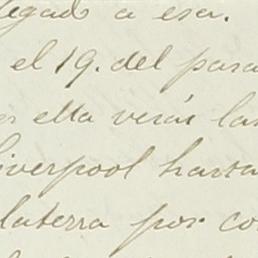 legado a esa.
el 19. del pasa
ella verás las
Liverpool hasta
laterra por co